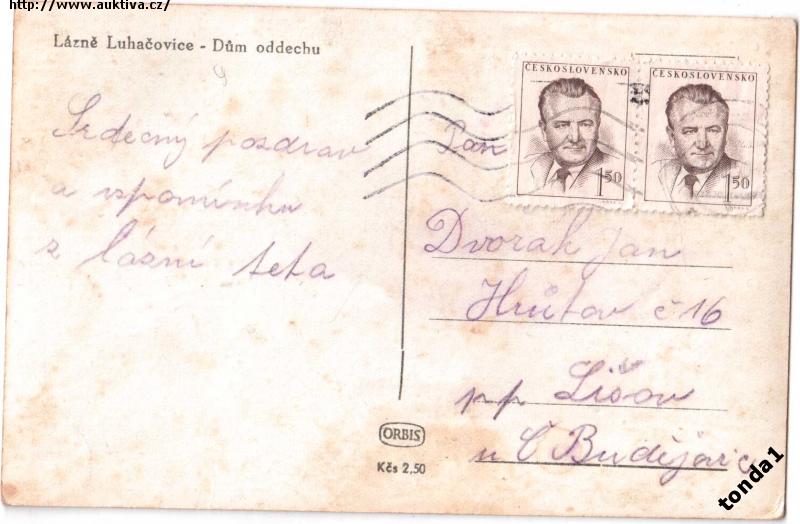 http://www.auktiva.cz/
Lázně Luhačovice - Dům oddechu
Srdečný pozdrav
a vzpomínku
z lázní teta
ČESKOSLOVENSKO
1.50
ČESKOSLOVENSKO
1.50
Pan
Dvorak Jan
Hrůtov č 16
pp Lišov
u Č Budějovic
ORBIS
Kčs 2,50
tonda1